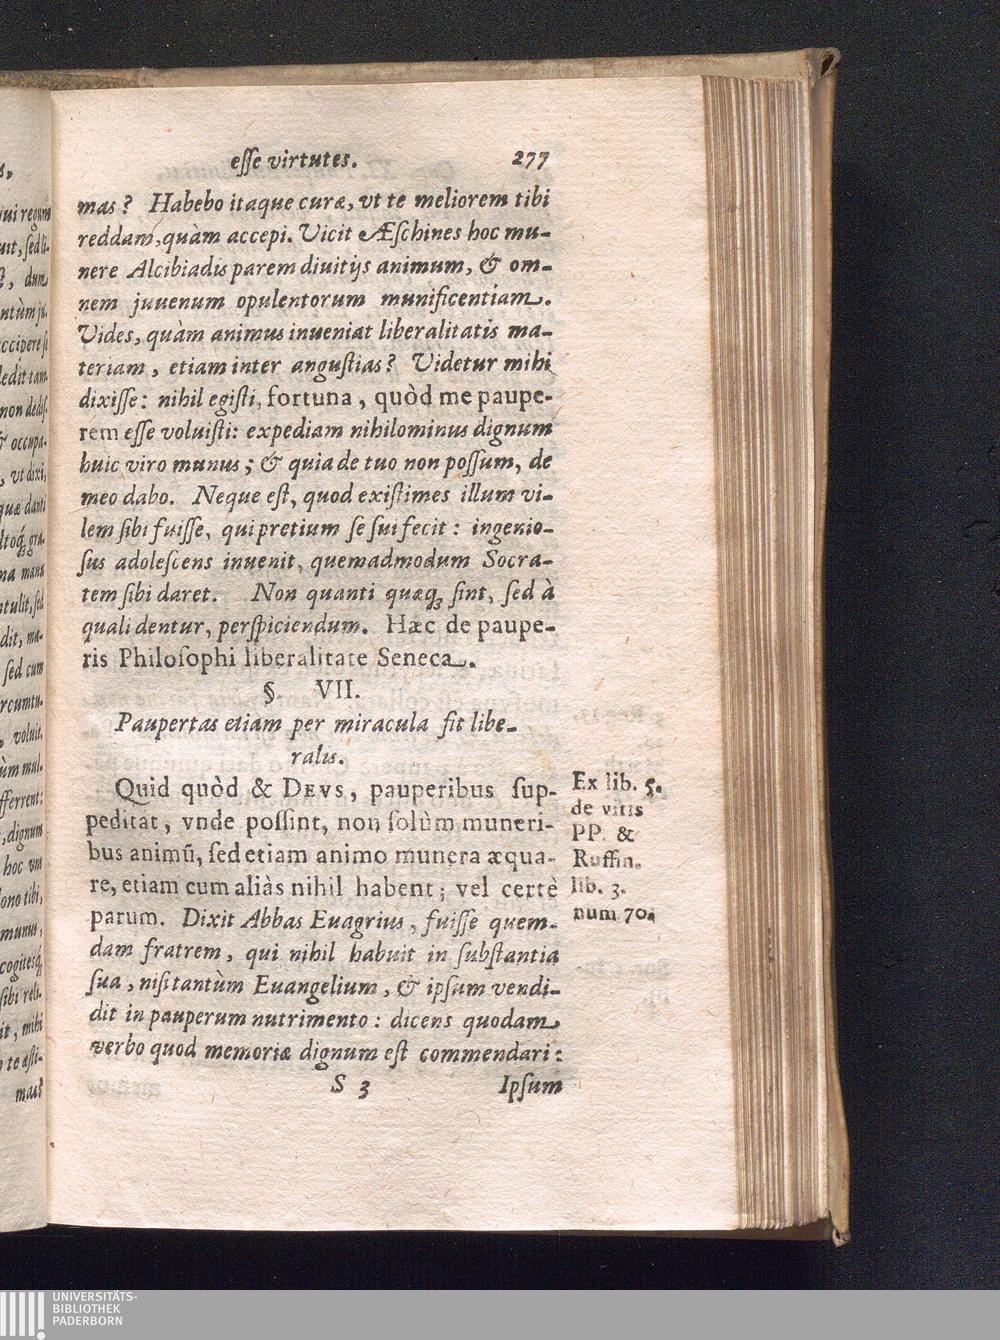 esse virtutes. 277
mas? Habebo itaque curæ, vt te meliorem tibi
reddam, quàm accepi. Vicit Æschines hoc mu-
nere Alcibiadis parem diuitijs animum, & om-
nem juuenum opulentorum munificentiam.
Vides, quàm animus inueniat liberalitatis ma-
teriam, etiam inter angustias? Videtur mihi
dixisse: nihil egisti, fortuna, quòd me paupe-
rem esse voluisti: expediam nihilominus dignum
huic viro munus; & quia de tuo non possum, de
meo dabo. Neque est, quod existimes illum vi-
lem sibi fuisse, qui pretium se sui fecit: ingenio-
sus adolescens inuenit, quemadmodum Socra-
tem sibi daret. Non quanti quæq; sint, sed à
quali dentur, perspiciendum. Hæc de paupe-
ris Philosophi liberalitate Seneca.
§. VII.
Paupertas etiam per miracula fit libe-
ralis.
Quid quòd & DEVS, pauperibus sup-
peditat, vnde possint, non solùm muneri-
bus animũ, sed etiam animo munera æqua-
re, etiam cum aliàs nihil habent; vel certè
parum. Dixit Abbas Euagrius, fuisse quem-
dam fratrem, qui nihil habuit in substantia
sua, nisi tantùm Euangelium, & ipsum vendi-
dit in pauperum nutrimento: dicens quodam
verbo quod memoriæ dignum est commendari:
S 3 Ipsum
Ex lib. 5.
de vitis
PP. &
Ruffin.
lib. 3.
num 70.
UNIVERSITÄTS-
BIBLIOTHEK
PADERBORN